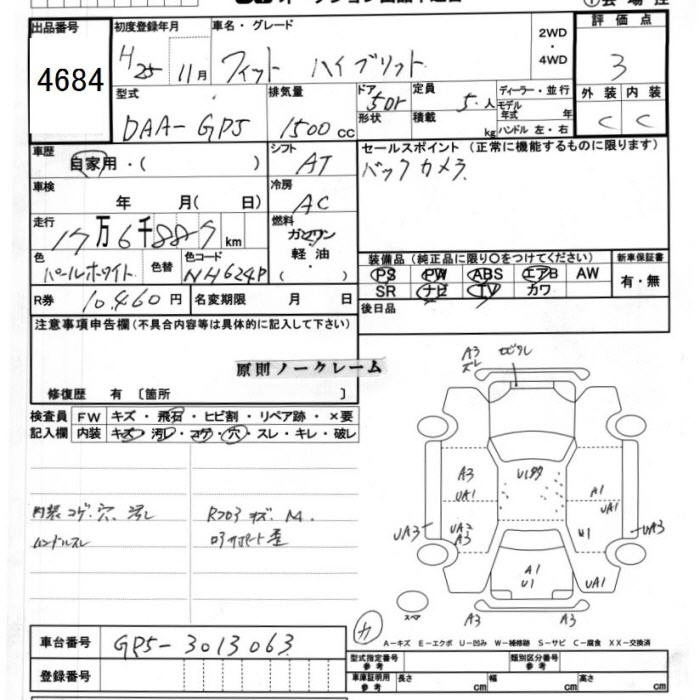 出品番号 初度登録年月 車名・グレード 2WD・4WD 評価点
4684 H25 11月 フィット ハイブリット 3
外装 内装
C C
型式 排気量 ドア 定員 ディーラー・並行
DAA-GP5 1500cc 5Dr 5人 モデル年式 年
形状 積載 kg ハンドル 左・右
車歴 シフト セールスポイント (正常に機能するものに限ります)
自家用・( ) AT バックカメラ
車検 冷房
年 月( 日) AC
走行 燃料
17万6千885km ガソリン
軽油
・( )
色 色替 色コード
パールホワイト NH624P
装備品 (純正品に限り〇をつけてください) 新車保証書
PS PW ABS エアB AW 有・無
SR ナビ TV カワ
R券 10,460円 名変期限 月 日 後日品
注意事項申告欄(不具合内容等は具体的に記入して下さい)
原則ノークレーム
修復歴 有 〔箇所 〕
検査員記入欄 FW キズ・飛石・ヒビ割・リペア跡・×要
内装 キズ・汚レ・コゲ・穴・スレ・キレ・破レ
内装 コゲ、穴、汚レ
ハンドルスレ
A3
A3
UA1
A1
UA1
UA3
UA2
A3
U1
UA3
A1
U1
UA1
A3
A3
スペア
A-キズ E-エクボ U-凹み W-補修跡 S-サビ C-腐食 XX-交換済
車台番号 GP5-3013063
登録番号
型式指定番号 参考 類別区分番号 参考
車庫証明用 参考 長さ cm 幅 cm 高さ cm